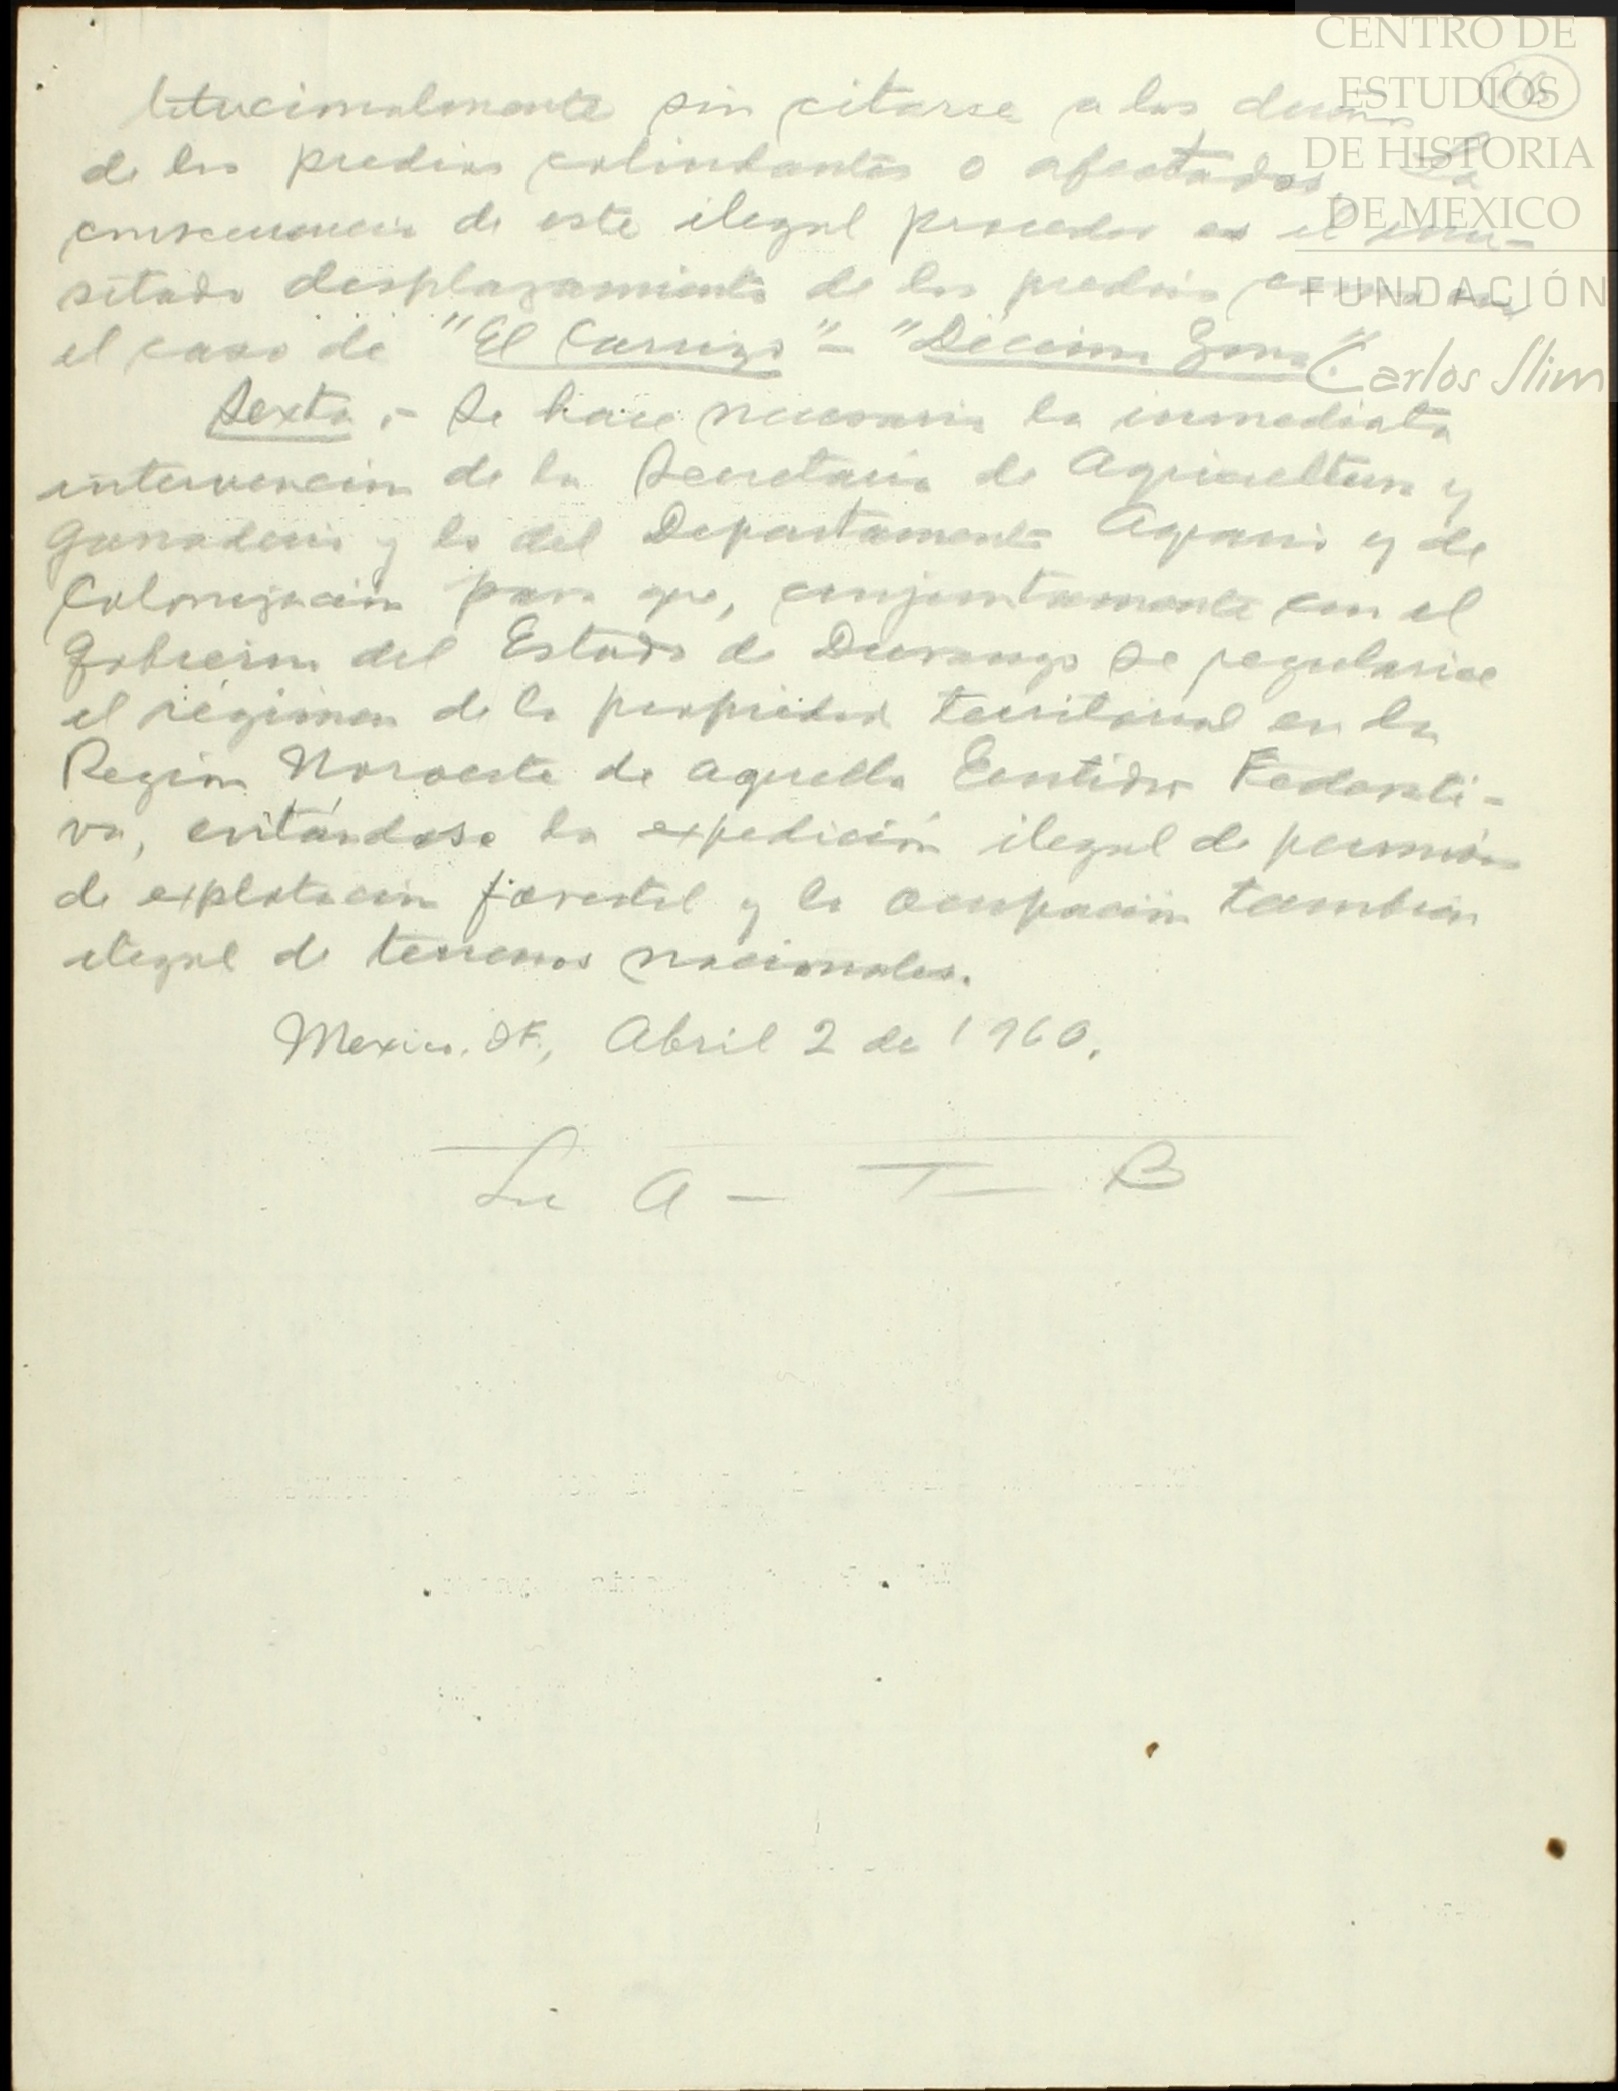 CENTRO DE
ESTUDIOS
DE HISTORIA
DE MEXICO
FUNDACIÓN
Carlos Slim
titucionalmente sin citarse a los dueños
de los predios colindantes o afectados. La
consecuencia de este ilegal proceder es el inu-
sitado desplazamiento de los predios como en
el caso de "El Carrizo" - "Décima Zona".
Sexta.- Se hace necesaria la inmediata
intervención de la Secretaría de Agricultura y
Ganadería y la del Departamento Agrario y de
Colonización para que, conjuntamente con el
Gobierno del Estado de Durango se regularice
el régimen de la propiedad territorial en la
Región Noroeste de aquella Entidad Federati-
va, evitándose la expedición ilegal de permisos
de explotación forestal y la ocupación también
ilegal de terrenos nacionales.
Mexico. D.F., Abril 2 de 1960.
A - T B